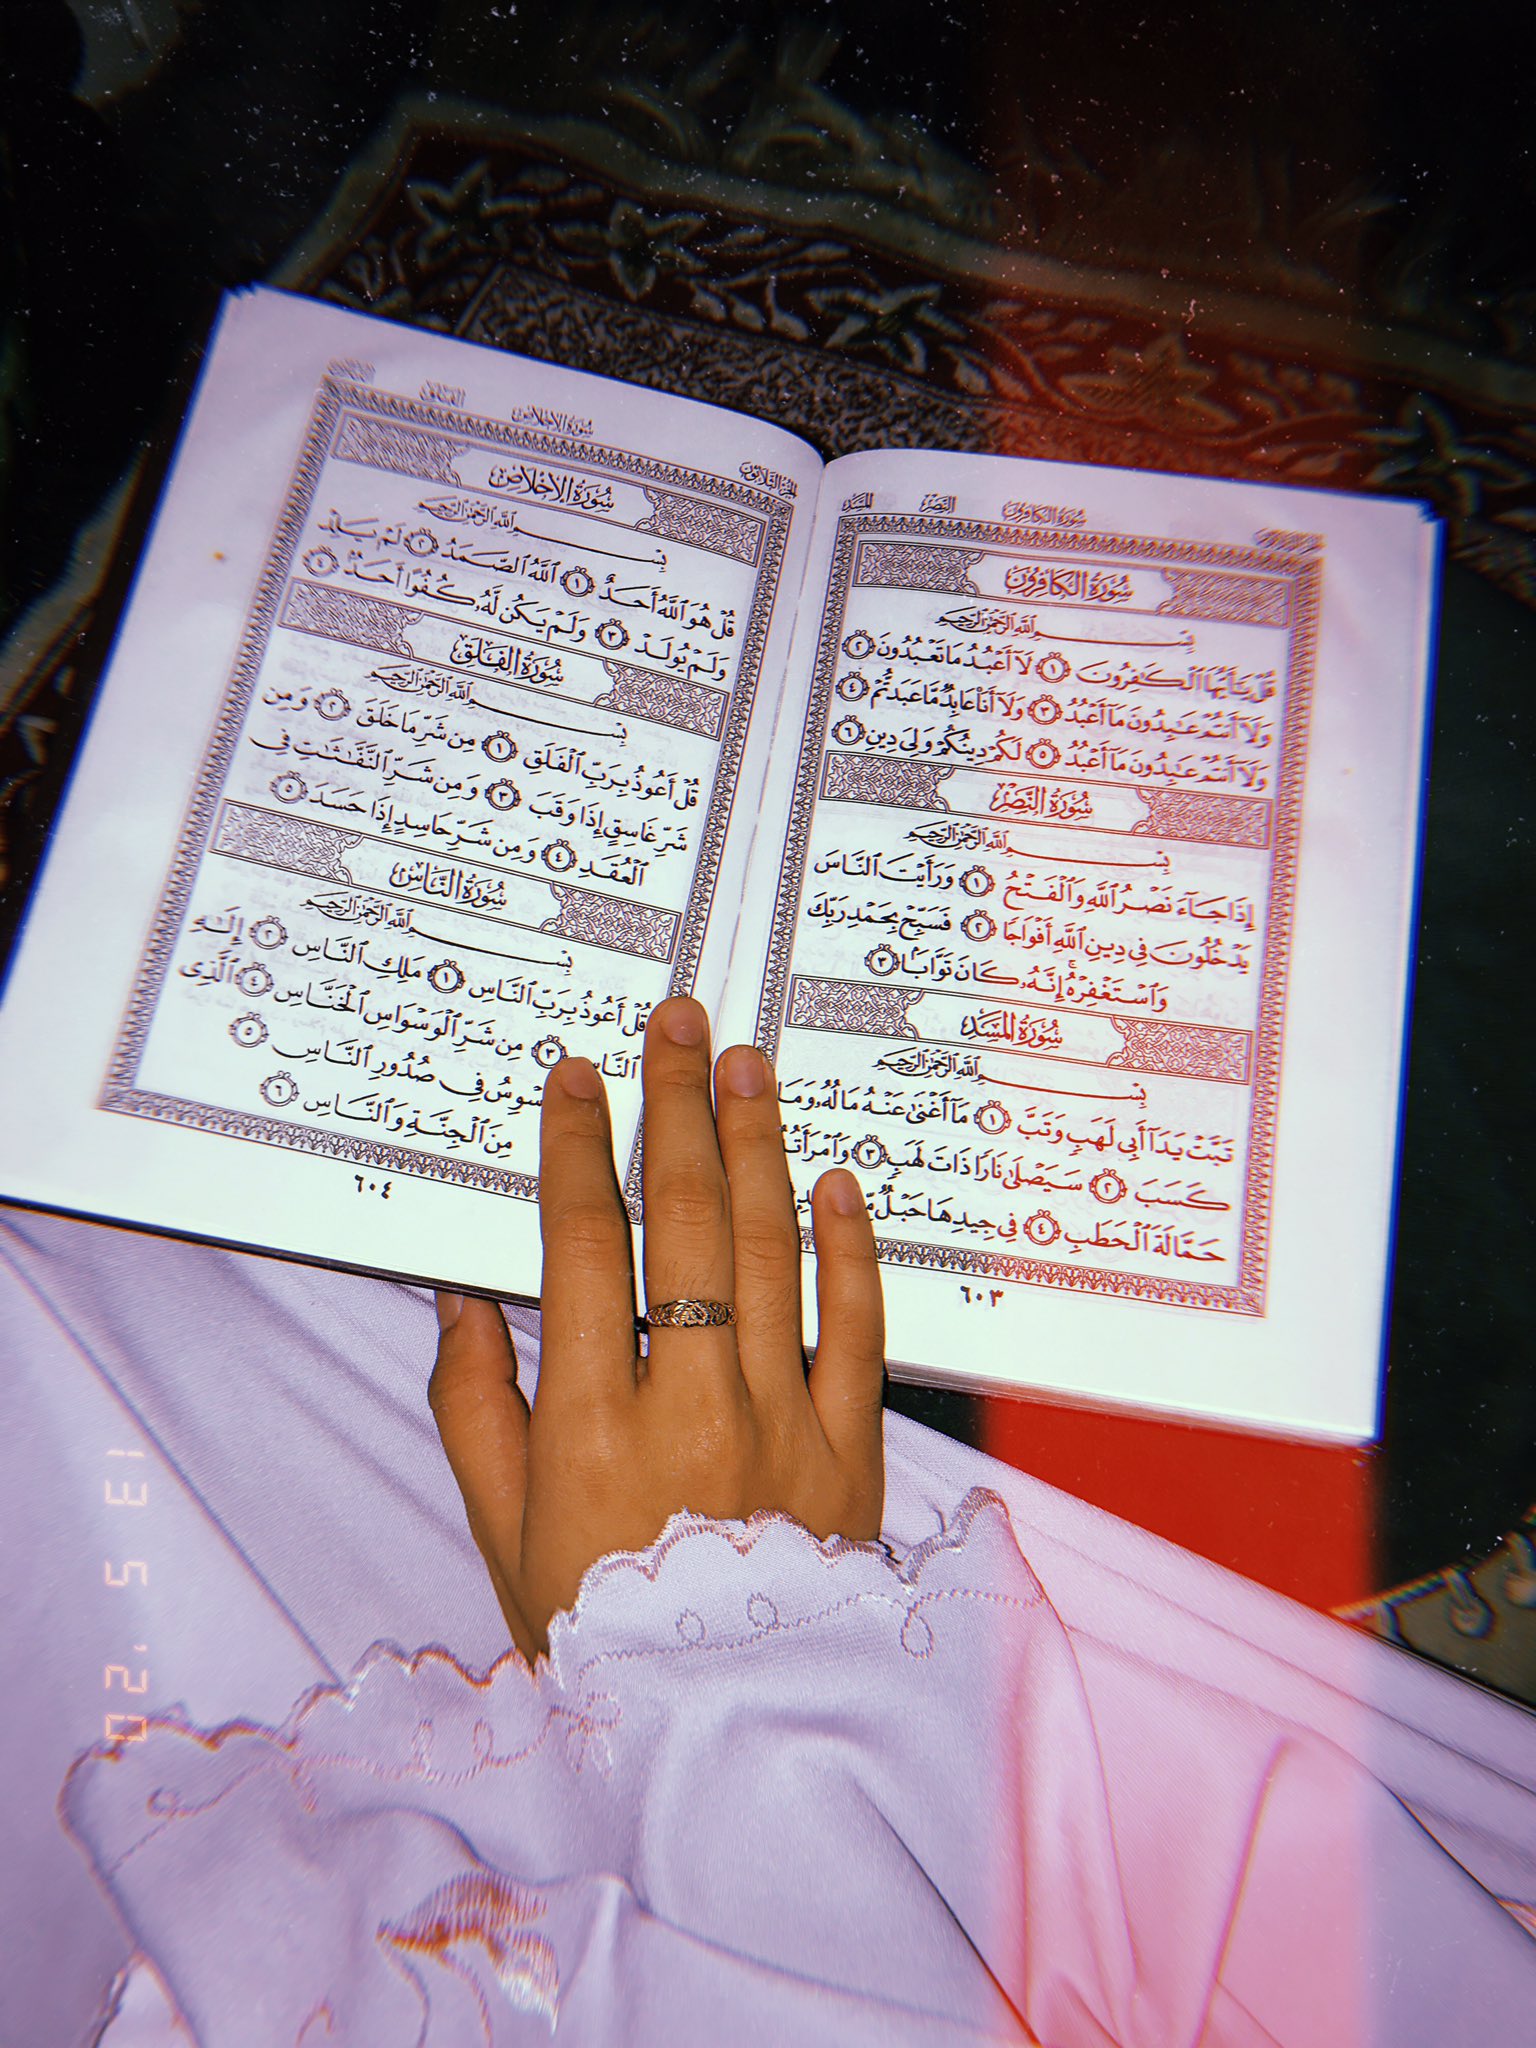 سُورَةُ الكَافِرُونَ
النَّصْر
المَسَد
سُورَةُ الكَافِرُونَ
بِسْمِ ٱللَّهِ ٱلرَّحْمَٰنِ ٱلرَّحِيمِ
قُلْ يَٰٓأَيُّهَا ٱلْكَٰفِرُونَ ١ لَآ أَعْبُدُ مَا تَعْبُدُونَ ٢
وَلَآ أَنتُمْ عَٰبِدُونَ مَآ أَعْبُدُ ٣ وَلَآ أَنَا۠ عَابِدٌ مَّا عَبَدتُّمْ ٤
وَلَآ أَنتُمْ عَٰبِدُونَ مَآ أَعْبُدُ ٥ لَكُمْ دِينُكُمْ وَلِىَ دِينِ ٦
سُورَةُ النَّصْرِ
بِسْمِ ٱللَّهِ ٱلرَّحْمَٰنِ ٱلرَّحِيمِ
إِذَا جَآءَ نَصْرُ ٱللَّهِ وَٱلْفَتْحُ ١ وَرَأَيْتَ ٱلنَّاسَ
يَدْخُلُونَ فِى دِينِ ٱللَّهِ أَفْوَاجًا ٢ فَسَبِّحْ بِحَمْدِ رَبِّكَ
وَٱسْتَغْفِرْهُ ۚ إِنَّهُۥ كَانَ تَوَّابًۢا ٣
سُورَةُ المَسَدِ
بِسْمِ ٱللَّهِ ٱلرَّحْمَٰنِ ٱلرَّحِيمِ
تَبَّتْ يَدَآ أَبِى لَهَبٍ وَتَبَّ ١ مَآ أَغْنَىٰ عَنْهُ مَالُهُۥ وَمَا
كَسَبَ ٢ سَيَصْلَىٰ نَارًا ذَاتَ لَهَبٍ ٣ وَٱمْرَأَتُهُۥ
حَمَّالَةَ ٱلْحَطَبِ ٤ فِى جِيدِهَا حَبْلٌ
٦٠٣
الجُزْءُ الثَّلَاثُونَ
سُورَةُ الإِخْلَاصِ
الفَلَق
سُورَةُ الإِخْلَاصِ
بِسْمِ ٱللَّهِ ٱلرَّحْمَٰنِ ٱلرَّحِيمِ
قُلْ هُوَ ٱللَّهُ أَحَدٌ ١ ٱللَّهُ ٱلصَّمَدُ ٢ لَمْ يَلِدْ
وَلَمْ يُولَدْ ٣ وَلَمْ يَكُن لَّهُۥ كُفُوًا أَحَدٌۢ ٤
سُورَةُ الفَلَقِ
بِسْمِ ٱللَّهِ ٱلرَّحْمَٰنِ ٱلرَّحِيمِ
قُلْ أَعُوذُ بِرَبِّ ٱلْفَلَقِ ١ مِن شَرِّ مَا خَلَقَ ٢ وَمِن
شَرِّ غَاسِقٍ إِذَا وَقَبَ ٣ وَمِن شَرِّ ٱلنَّفَّٰثَٰتِ فِى
ٱلْعُقَدِ ٤ وَمِن شَرِّ حَاسِدٍ إِذَا حَسَدَ ٥
سُورَةُ النَّاسِ
بِسْمِ ٱللَّهِ ٱلرَّحْمَٰنِ ٱلرَّحِيمِ
قُلْ أَعُوذُ بِرَبِّ ٱلنَّاسِ ١ مَلِكِ ٱلنَّاسِ ٢ إِلَٰهِ
ٱلنَّاسِ ٣ مِن شَرِّ ٱلْوَسْوَاسِ ٱلْخَنَّاسِ ٤ ٱلَّذِى
فِى صُدُورِ ٱلنَّاسِ ٥
مِنَ ٱلْجِنَّةِ وَٱلنَّاسِ ٦
٦٠٤
13 5 '20